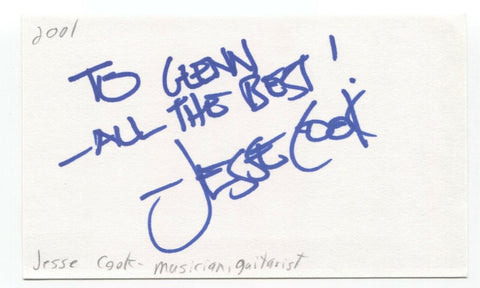 2001
TO GLENN
-ALL THE BEST!
-JESSE COOK
Jesse Cook- musician, guitarist